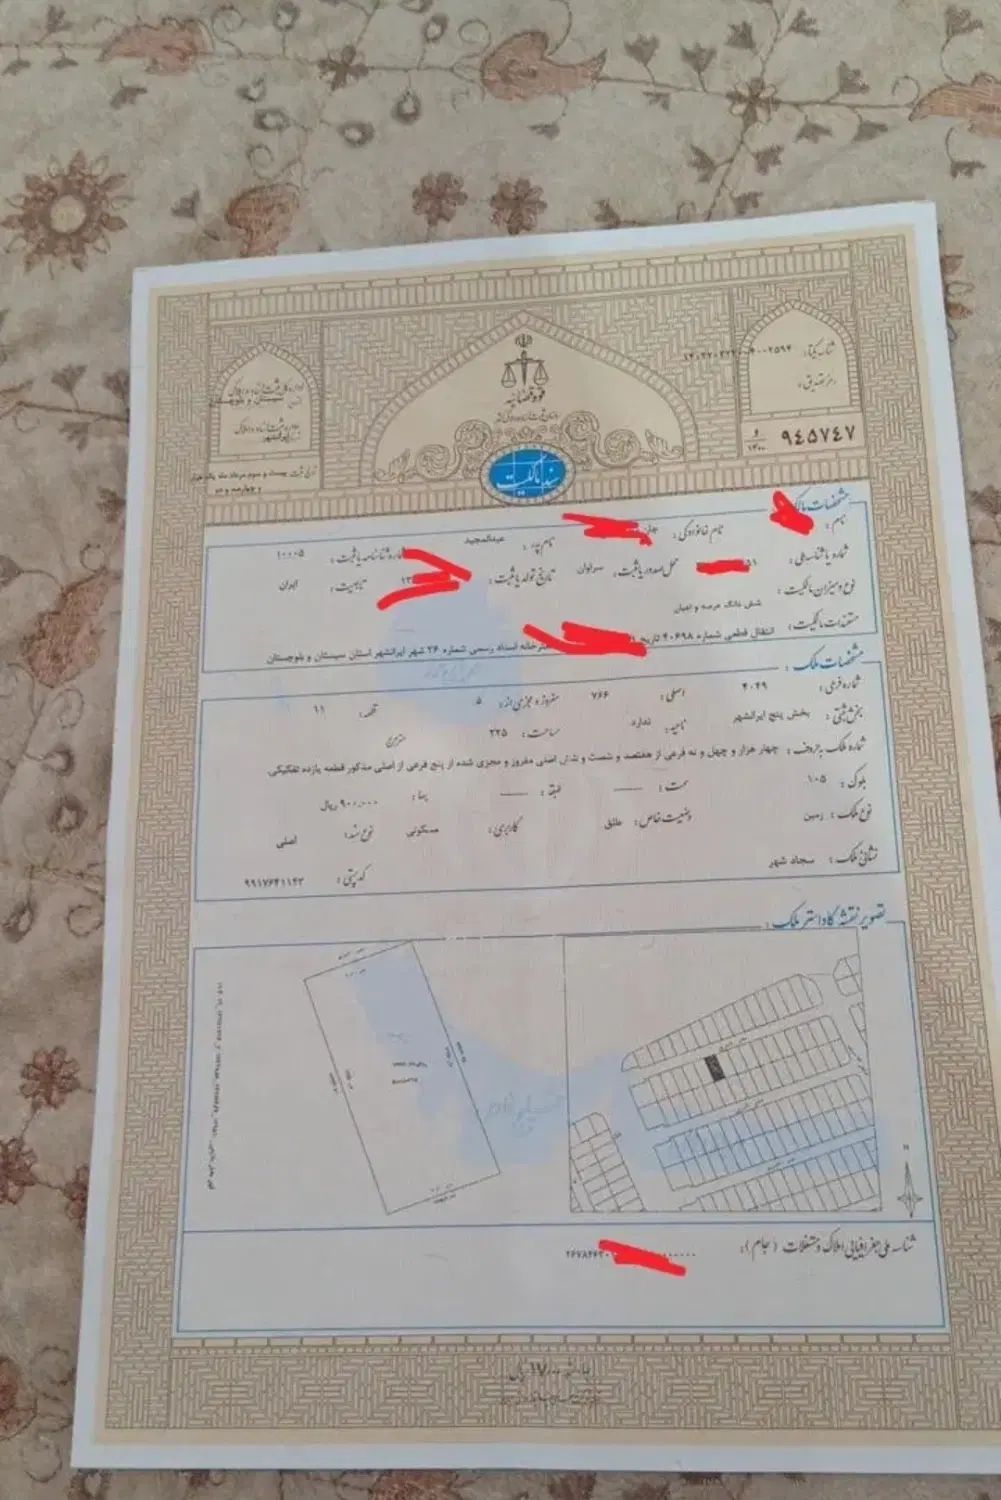 شناسه یکتا: ۱۴۰۲۲۰۳۲۲۲۰۴۰۰۲۵۹۴
رمز تصدیق:
۹۴۵۷۴۷ و ۱۴۰۰
قوه قضائیه
سازمان ثبت اسناد و املاک کشور
سیستان و بلوچستان
ایرانشهر
تاریخ ثبت بیست و سوم مرداد ماه یک هزار
و چهارصد و دو
سند مالکیت
مشخصات مالک
نام: نام خانوادگی: نام پدر: عبدالمجید شماره شناسنامه یا ثبت: ۱۰۰۰۵
شماره یا شناسه ملی: ۵۱ محل صدور یا ثبت: سراوان تاریخ تولد یا ثبت: ۱۳ تابعیت: ایران
نوع و میزان مالکیت: شش دانگ عرصه و اعیان
مستندات مالکیت: انتقال قطعی شماره ۴۰۶۹۸ تاریخ دفترخانه اسناد رسمی شماره ۲۶ شهر ایرانشهر استان سیستان و بلوچستان
مشخصات ملک:
شماره فرعی: ۴۰۴۹ اصلی: ۷۶۶ مفروز و مجزی از: ۵ قطعه: ۱۱
بخش ثبتی: بخش پنج ایرانشهر ناحیه: ندارد مساحت: ۲۲۵ مترمربع
شماره ملک به حروف: چهار هزار و چهل و نه فرعی از هفتصد و شصت و شش اصلی مفروز و مجزی شده از پنج فرعی از اصلی مذکور قطعه یازده تفکیکی.
بلوک: ۱۰۵ سمت: ــــ طبقه: ــــ بها: ۹۰۰,۰۰۰ ریال
نوع ملک: زمین وضعیت خاص: طلق کاربری: مسکونی نوع سند: اصلی
نشانی ملک: سجاد شهر کد پستی: ۹۹۱۷۶۴۱۱۴۳
تصویر نقشه کاداستر ملک:
N
شناسه ملی جغرافیایی املاک و مستغلات (جام):